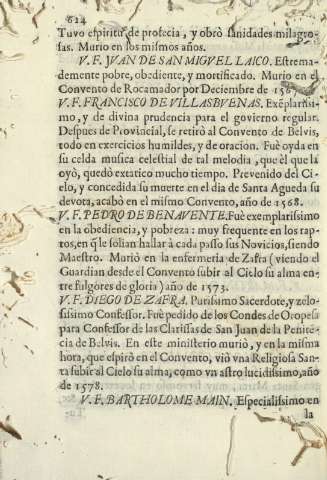 624
Tuvo espiritu de profecia, y obrò sanidades milagro-
sas. Murio en los mismos años.
V. F. JVAN DE SAN MIGVEL LAICO. Estrema-
demente pobre, obediente, y mortificado. Murio en el
Convento de Rocamador por Deciembre de 156
V. F. FRANCISCO DE VILLASBVENAS. Exẽplarissi-
mo, y de divina prudencia para el govierno regular.
Despues de Provincial, se retirò al Convento de Belvis,
todo en exercicios humildes, y de oracion. Fuè oyda en
su celda musica celestial de tal melodia, que èl que la
oyò, quedò extatico mucho tiempo. Prevenido del Cie-
lo, y concedida su muerte en el dia de Santa Agueda su
devota, acabò en el mismo Convento, año de 1568.
V. F. PEDRO DE BENAVENTE. Fuè exemplarissimo
en la obediencia, y pobreza: muy frequente en los rap-
tos, en q̃ le solian hallar à cada passo sus Novicios, siendo
Maestro. Muriò en la enfermeria de Zafra (viendo el
Guardian desde el Convento subir al Cielo su alma en-
tre fulgores de gloria) año de 1573.
V. F. DIEGO DE ZAFRA. Purissimo Sacerdote, y zelo-
sissimo Confessor. Fuè pedido de los Condes de Oropesa
para Confessor de las Clarissas de San Juan de la Penitẽ-
cia de Belvis. En este ministerio murio, y en la misma
hora, que espirò en el Convento, viò vna Religiosa San-
ta subir al Cielo su alma, como vn astro lucidissimo, año
de 1578.
V. F. BARTHOLOME MAIN. Especialissimo en
la